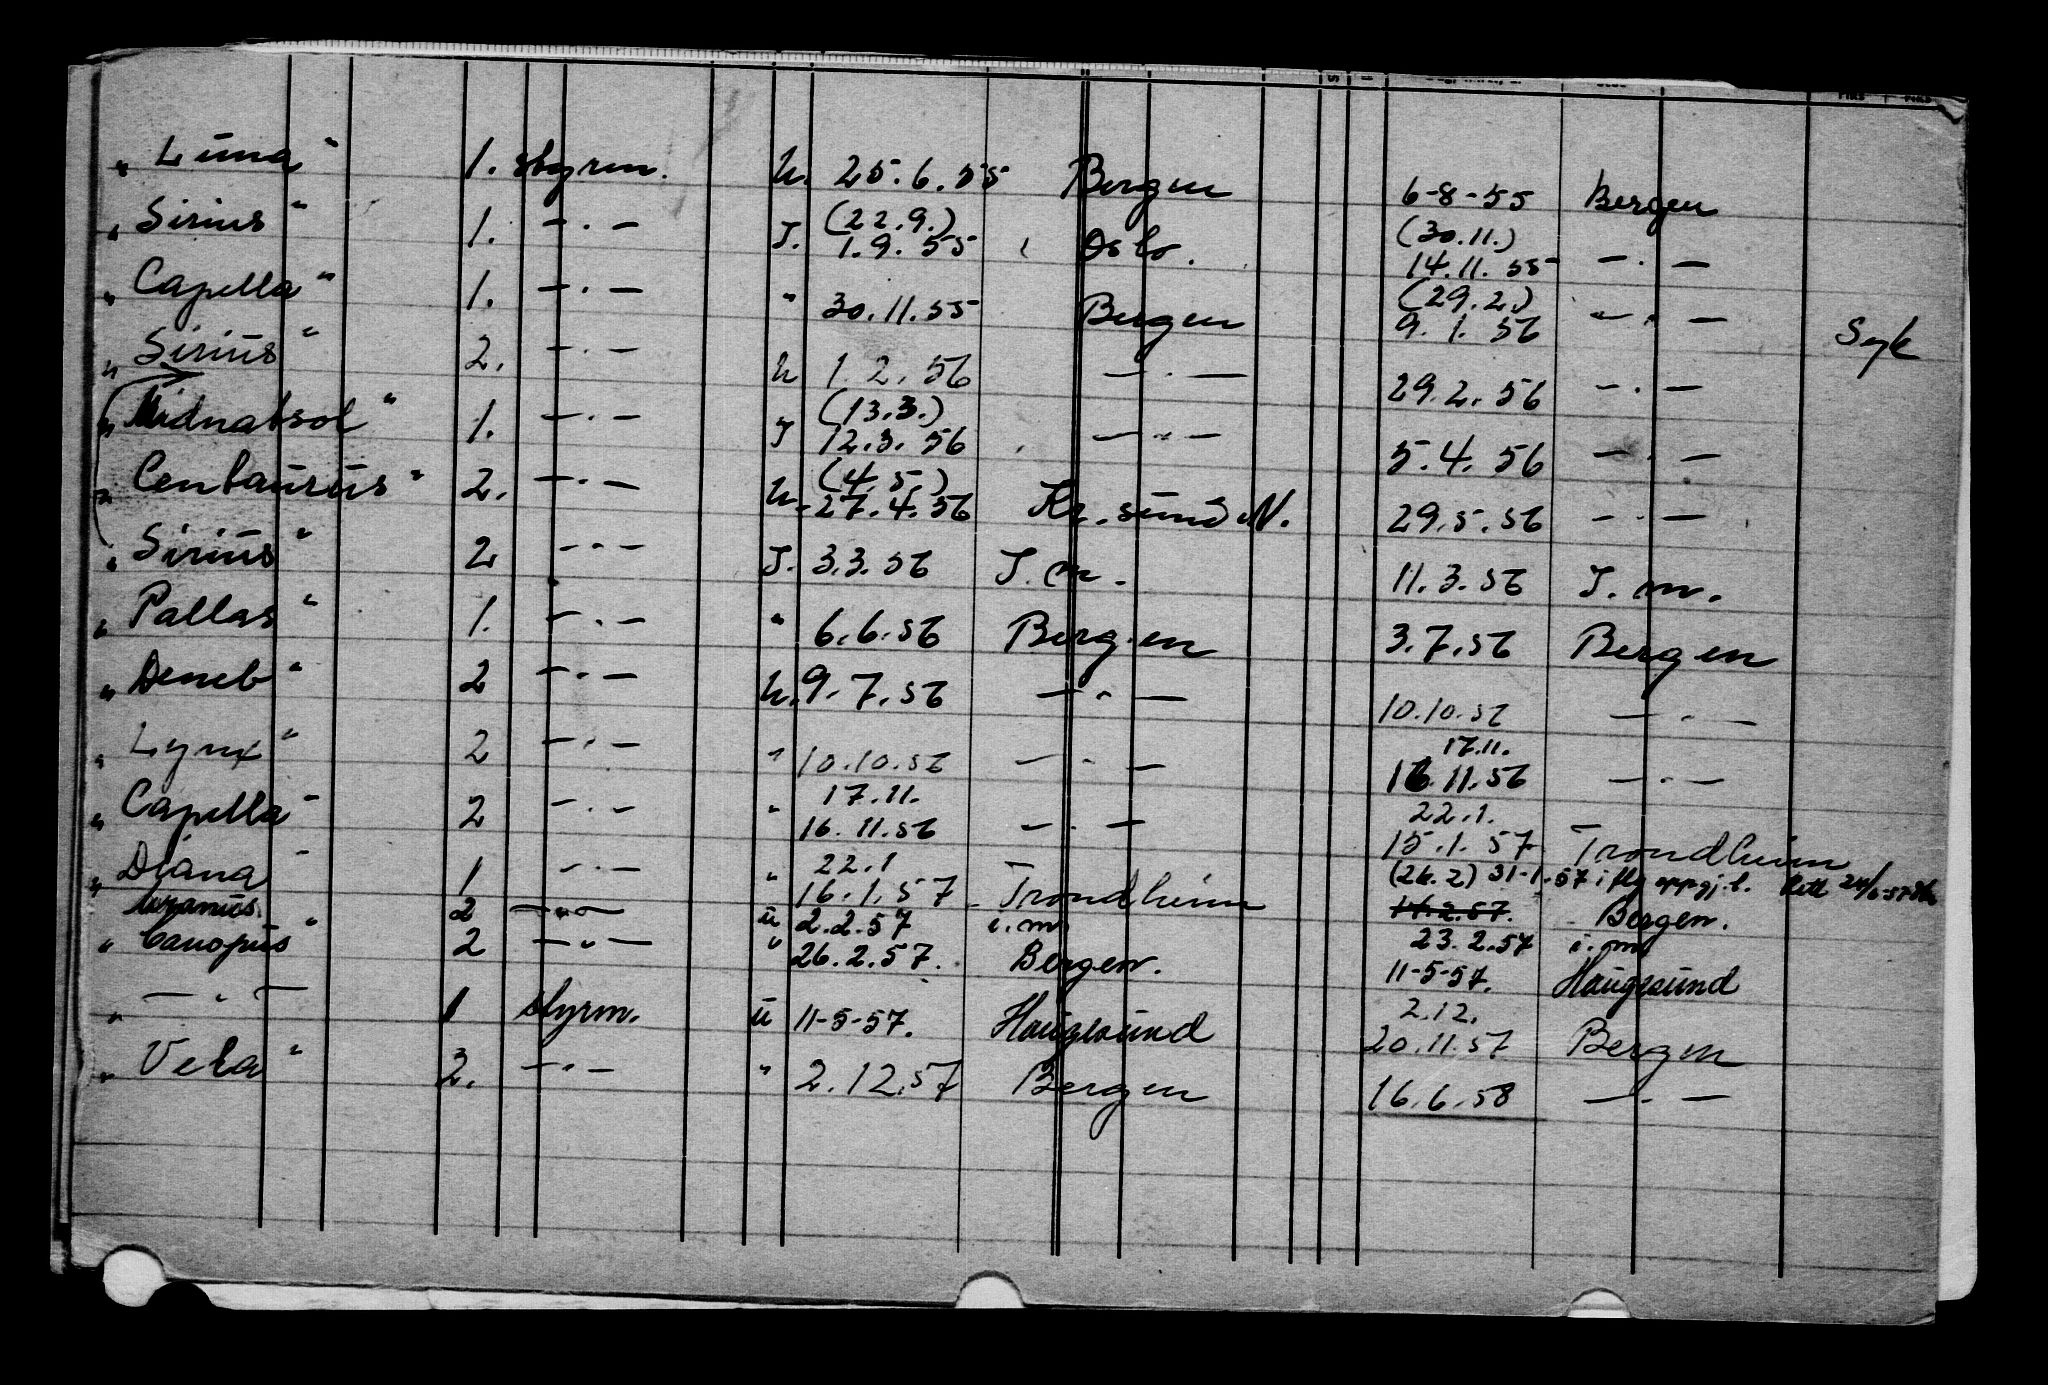 „ Luna “ 1. styrm. u. 25.6.55 Bergen 6-8-55 Bergen
„ Sirius “ 1. — · — J. (22.9.) 1.9.55 Oslo. (30.11.) 14.11.55 — · —
„ Capella “ 1. — · — " 30.11.55 Bergen (29.2.) 9.1.56 — " — Syk
„ Sirius “ 2. — · — u 1.2.56 — · — 29.2.56 — · —
„ Midnatsol “ 1. — · — J (13.3.) 12.3.56 — " — 5.4.56 — · —
„ Centaurus “ 2. — · — u. (4.5.) 27.4.56 Kr.sund N. 29.5.56 — · —
„ Sirius “ 2 — · — J. 3.3.56 J. m. 11.3.56 J. m.
„ Pallas “ 1. — · — " 6.6.56 Bergen 3.7.56 Bergen
„ Deneb “ 2 — · — u. 9.7.56 — " — 10.10.56 — · —
„ Lynx “ 2 — · — " 10.10.56 — · — 17.11. 16.11.56 — · —
„ Capella “ 2 — · — " 17.11. 16.11.56 — · — 22.1. 15.1.57 Trondheim
„ Diana “ 1 — · — " 22.1 16.1.57 Trondheim (26.2) 31-1.57 i flg oppgj.b.
Uranus 2 — " — u 2.2.57 i.m. 11.2.57. Bergen. 23.2.57 i.m.
„ Canopus “ 2 — " — " 26.2.57. Bergen. 11-5-57. Haugesund
„ — · — 1 styrm. u 11-5-57. Haugesund 2.12. 20.11.57 Bergen
„ Vela “ 2. — " — " 2.12.57 Bergen 16.6.58 — · —